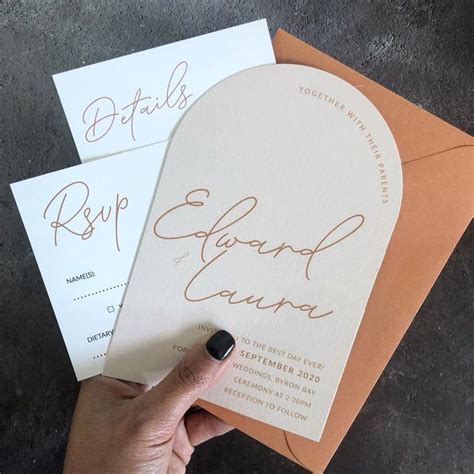 Details
Rsvp
NAME(S):
DIETARY
TOGETHER WITH THEIR PARENTS
Edward
&
Laura
TO THE BEST DAY EVER!
SEPTEMBER 2020
WEDDINGS, BYRON BAY
CEREMONY AT 2:30PM
RECEPTION TO FOLLOW